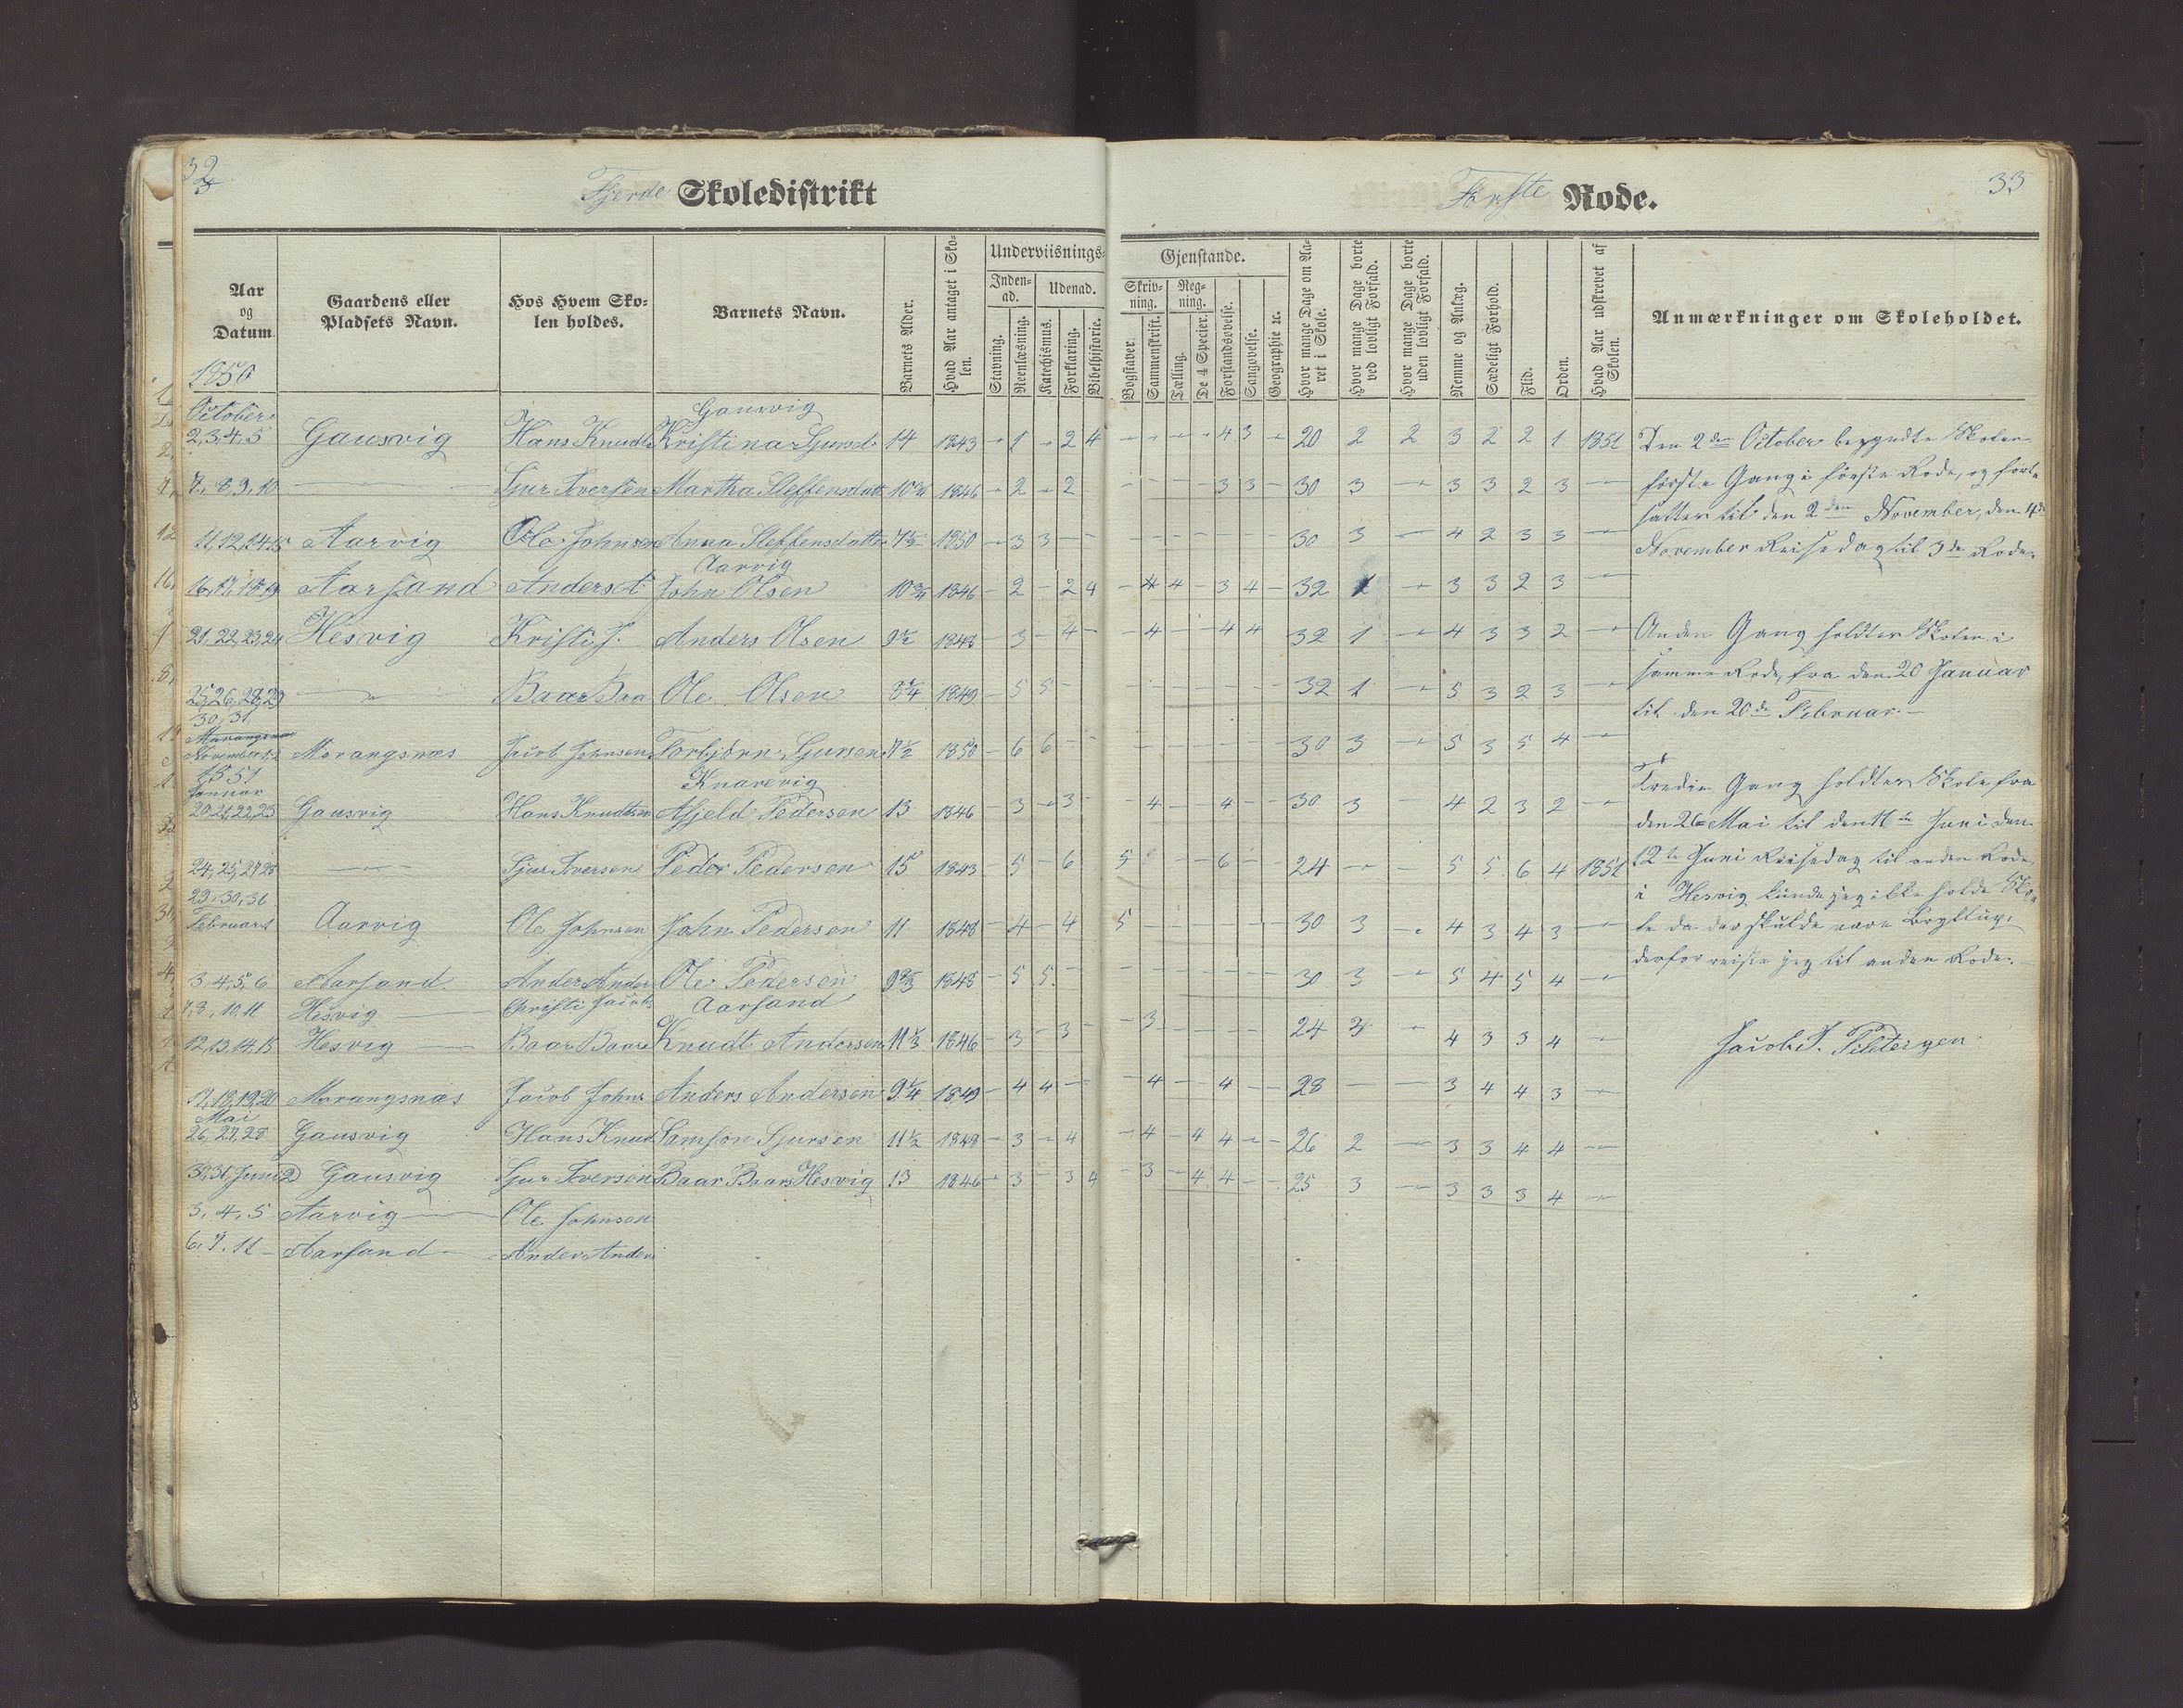 32
Fjerde Skoledistrikt
Aar og Datum
Gaardens eller Pladsets Navn.
Hos Hvem Skolen holdes.
Barnets Navn.
Barnets Alder.
Hvad Aar antaget i Skolen.
Underviisnings-
Indenad.
Udenad.
Stavning.
Reenlæsning.
Katechismus.
Forklaring.
Bibelhistorie.
1850
October
Gausvig
2,3,4,5 Gausvig Hans Knudts Kristina Sjursd. 14 1843 - 1 - 2 4
7, 8, 9, 10 — Sjur Iversen Martha Steffensdatt 10¾ 1846 - 2 - 2
11,12,14,15 Aarvig Ole Johnsen Anna Steffensdatter 7½ 1850 - 3 3 - -
Aarvig
16,17,18,19 Aarsand Anders A John Olsen 10¾ 1846 - 2 - 2 4
21,22,23,24 Hesvig Kristi J. Anders Olsen 9½ 1848 - 3 - 4 -
25,26,28,29 — Baar Baa Ole Olsen 8¼ 1849 - 5 5 -
30,31
November 1,2 Morangsnæs Jacob Johnsen Torbjørn Sjursen 7½ 1850 - 6 6 - -
1851
Januar
Knarevig
20,21,22,23 Gausvig Hans Knudtsen Afjeld Pedersen 13 1846 - 3 - 3 -
24,25,27,28 — Sjur Iversen Peder Pedersen 15 1843 - 5 - 6
29,30,31
Februar 1 Aarvig Ole Johnsen John Pedersen 11 1848 - 4 - 4
3,4,5,6 Aarsand Anders Ander Ole Pedersen 9⅔ 1848 - 5 5 -
7,8,10,11 Hesvig — Christi Jacob Aarsand
12,13,14,15 Hesvig — Baar Baars Knudt Andersen 11⅓ 1846 - 3 - 3 -
17,18,19,20 Morangsnæs Jacob Johns Anders Andersen 9¼ 1849 - 4 4 - -
Mai
26,27,28 Gausvig Hans Knud Samson Sjursen 11½ 1848 - 3 - 4
30,31, Juni 2 Gausvig Sjur Iversen Baar Baars Hesvig 13 1846 - 3 - 3 4
3, 4, 5 Aarvig — Ole Johnsen
6, 7, 11 - Aarsand - Anders Anders
33
Første Rode.
Gjenstande.
Skrivning.
Regning.
Bogstaver.
Sammenskrift.
Tælling.
De 4 Specier.
Forstandsøvelse.
Sangøvelse.
Geographie ꝛc.
Hvor mange Dage om Aaret i Skole.
Hvor mange Dage borte ved lovligt Forfald.
Hvor mange Dage borte uden lovligt Forfald.
Nemme og Anlæg.
Sædeligt Forhold.
Flid.
Orden.
Hvad Aar udskrevet af Skolen.
Anmærkninger om Skoleholdet.
- - - - 4 3 - 20 2 2 3 2 2 1 1851
- - - - 3 3 - 30 3 - 3 3 2 3 -
- - - - - - - 30 3 - 4 2 3 3 -
- 4 4 - 3 4 - 32 1 - 3 3 2 3 -
- 4 - - 4 4 32 1 - 4 3 3 2 -
- - - - - - 32 1 - 5 3 2 3 -
- - - - - - 30 3 - 5 3 5 4 -
- 4 - - 4 - - 30 3 - 4 2 3 2 -
5 - - 6 - - 24 - - 5 5 6 4 1851
5 - - - - - - 30 3 - 4 3 4 3 -
- - - - - - 30 3 - 5 4 5 4 -
- 3 - - - - 24 3 - 4 3 3 4 -
- 4 - - 4 - - 28 - - 3 4 4 3 -
- 4 - 4 4 - - 26 2 - 3 3 4 4 -
- 3 - 4 4 - - 25 3 - 3 3 3 4 -
Den 2den October begyndte Skolen
første Gang i første Rode, og fort-
sattes til den 2den November, den 4de
November Reisedag til 3de Rode.
Anden Gang holdtes Skolen i
samme Rode, fra den 20 Januar
til den 20de Februar.
Tredie Gang holdtes Skole fra
den 26 Mai til den 11te Juni den
12te Juni Reisedag til anden Rode
i Hesvig kunde jeg ikke holde Sko-
le da der skulde være Bryllup,
derfor reiste jeg til anden Rode.
Jacob J.